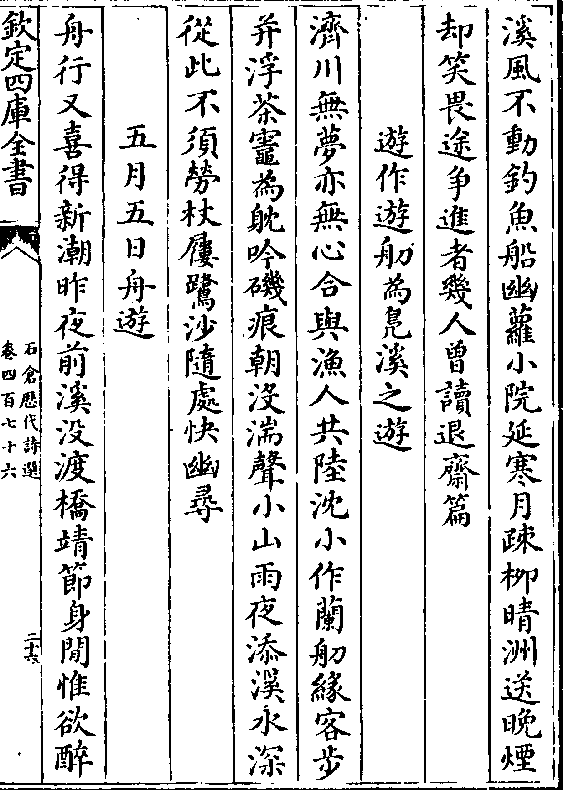 溪風不動釣魚船幽蘿小院延寒月疎栁晴洲送晚煙
却笑畏途争進者幾人曽讀退齋篇
遊作遊舠為鳬溪之遊
濟川無夢亦無心合與漁人共陸沈小作蘭舠緣客步
并浮茶竈為躭吟磯痕朝没湍聲小山雨夜添溪水深
從此不須勞杖屨鷺沙隨處快幽尋
五月五日舟遊
舟行又喜得新潮昨夜前溪没渡橋靖節身閒惟欲醉
欽定四庫全書
石倉歴代詩選
卷四百七十六
二十六